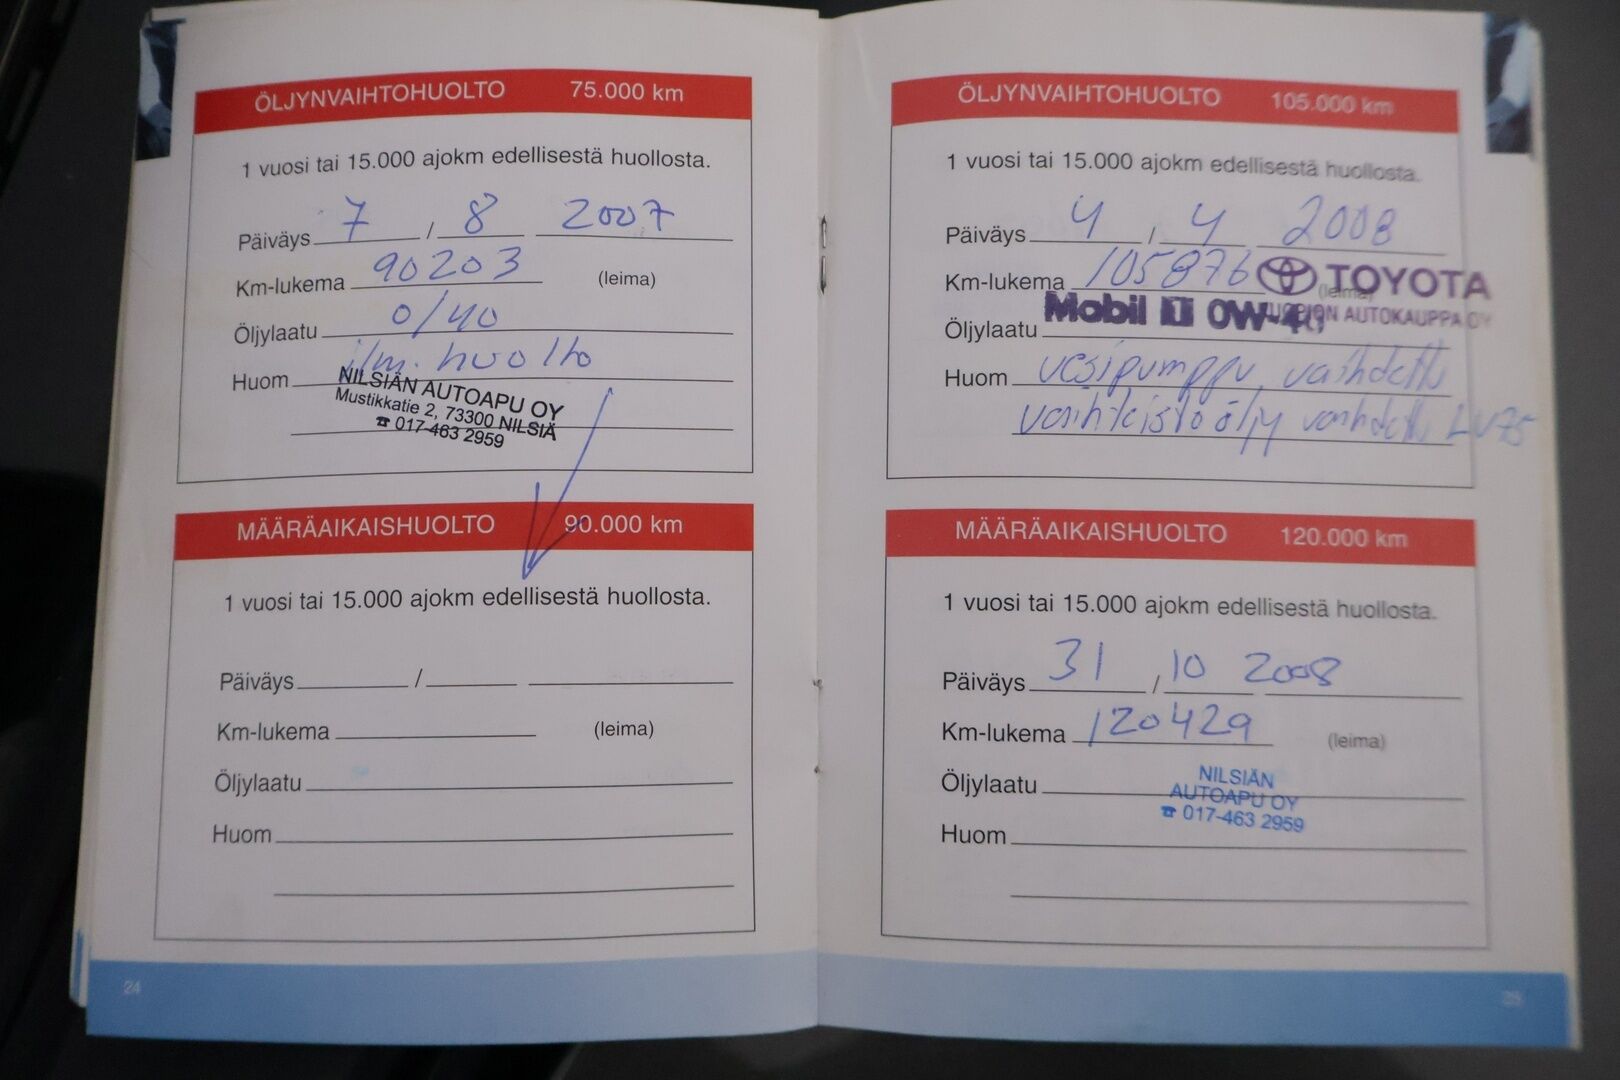 ÖLJYNVAIHTOHUOLTO 75.000 km
1 vuosi tai 15.000 ajokm edellisestä huollosta.
Päiväys 7 / 8 2007
Km-lukema 90203 (leima)
Öljylaatu 0/40
Huom ilm. huolto
NILSIÄN AUTOAPU OY
Mustikkatie 2, 73300 NILSIÄ
☎ 017-463 2959
MÄÄRÄAIKAISHUOLTO 90.000 km
1 vuosi tai 15.000 ajokm edellisestä huollosta.
Päiväys / 
Km-lukema (leima)
Öljylaatu
Huom
24
ÖLJYNVAIHTOHUOLTO 105.000 km
1 vuosi tai 15.000 ajokm edellisestä huollosta.
Päiväys 4 / 4 2008
Km-lukema 105876 (leima) TOYOTA
Öljylaatu Mobil 1 0W-40 AUTOKAUPPA OY
Huom vesipumppu vaihdettu
vaihteistoöljy vaihdettu LV75
MÄÄRÄAIKAISHUOLTO 120.000 km
1 vuosi tai 15.000 ajokm edellisestä huollosta.
Päiväys 31 / 10 2008
Km-lukema 120429 (leima)
Öljylaatu
NILSIÄN
AUTOAPU OY
☎ 017-463 2959
Huom
25